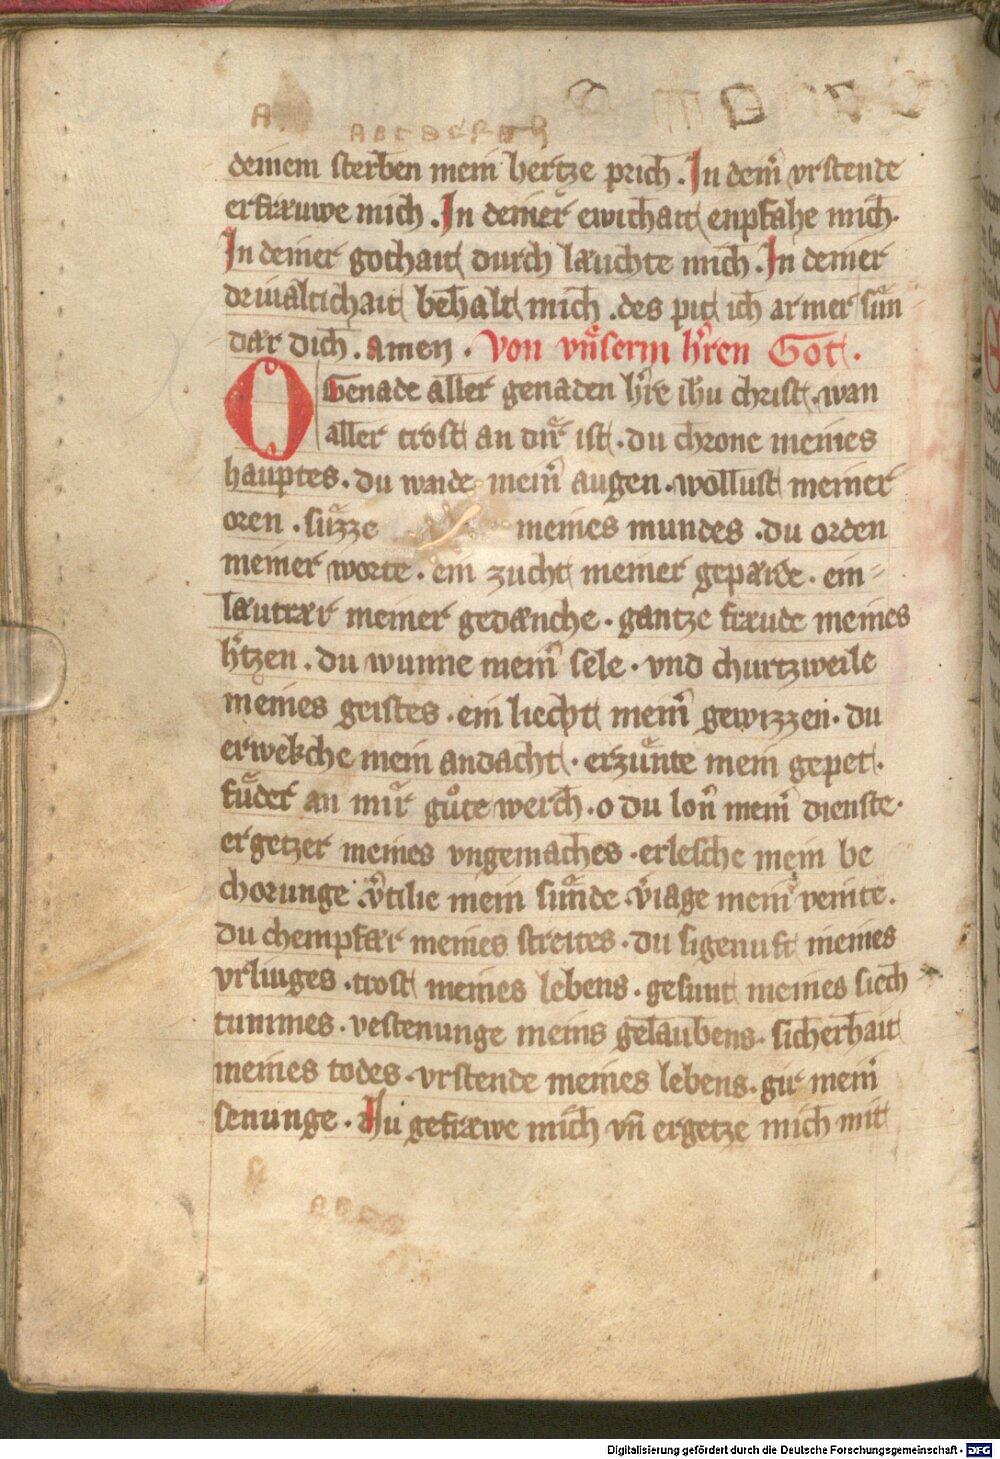 A
A B C D E F G H
deinem sterben mein hertze prich. In dem̄ vrstende
erfræuwe mich. In deiner ewichait enpfahe mich.
In deiner gothait durch læuchte mich. In deiner
driualtichait behalt mich. des pit ich armer sun
dær dich. amen. Von vnserm h̄ren Got.
O Genade aller genaden h̄re ihu christ. wan
aller trost an dir ist. du chrone meines
hauptes. du waide mein̄ augen. wollust meiner
oren. suͤzze meines mundes. du orden
meiner worte. ein zucht meiner gepærde. ein
læutrær meiner gedænche. gantze fræude meines
h̄tzen. du wunne mein̄ sele. vnd churtzweile
meines geistes. ein liecht mein̄ gewizzen. du
erwekche mein andacht. erzunte mein gepet.
fuͤder an mir guͦte werch. o du lon̄ mein̄ dienste.
ergetzer meines vngemaches. erlesche mein be
chorunge. v̄tilie mein sunde. v̄iage mein̄ veinte.
du chempfær meines streites. du sigenuft meines
vrliuges. trost meines lebens. gesunt meines siech
tummes. vestenunge meins gelaubens. sicherhait
meines todes. vrstende meines lebens. gir mein̄
senunge. Nu gefræwe mich vn̄ ergetze mich mit
Digitalisierung gefördert durch die Deutsche Forschungsgemeinschaft - DFG